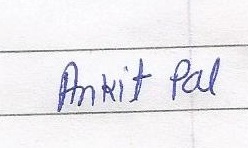 Ankit Pal